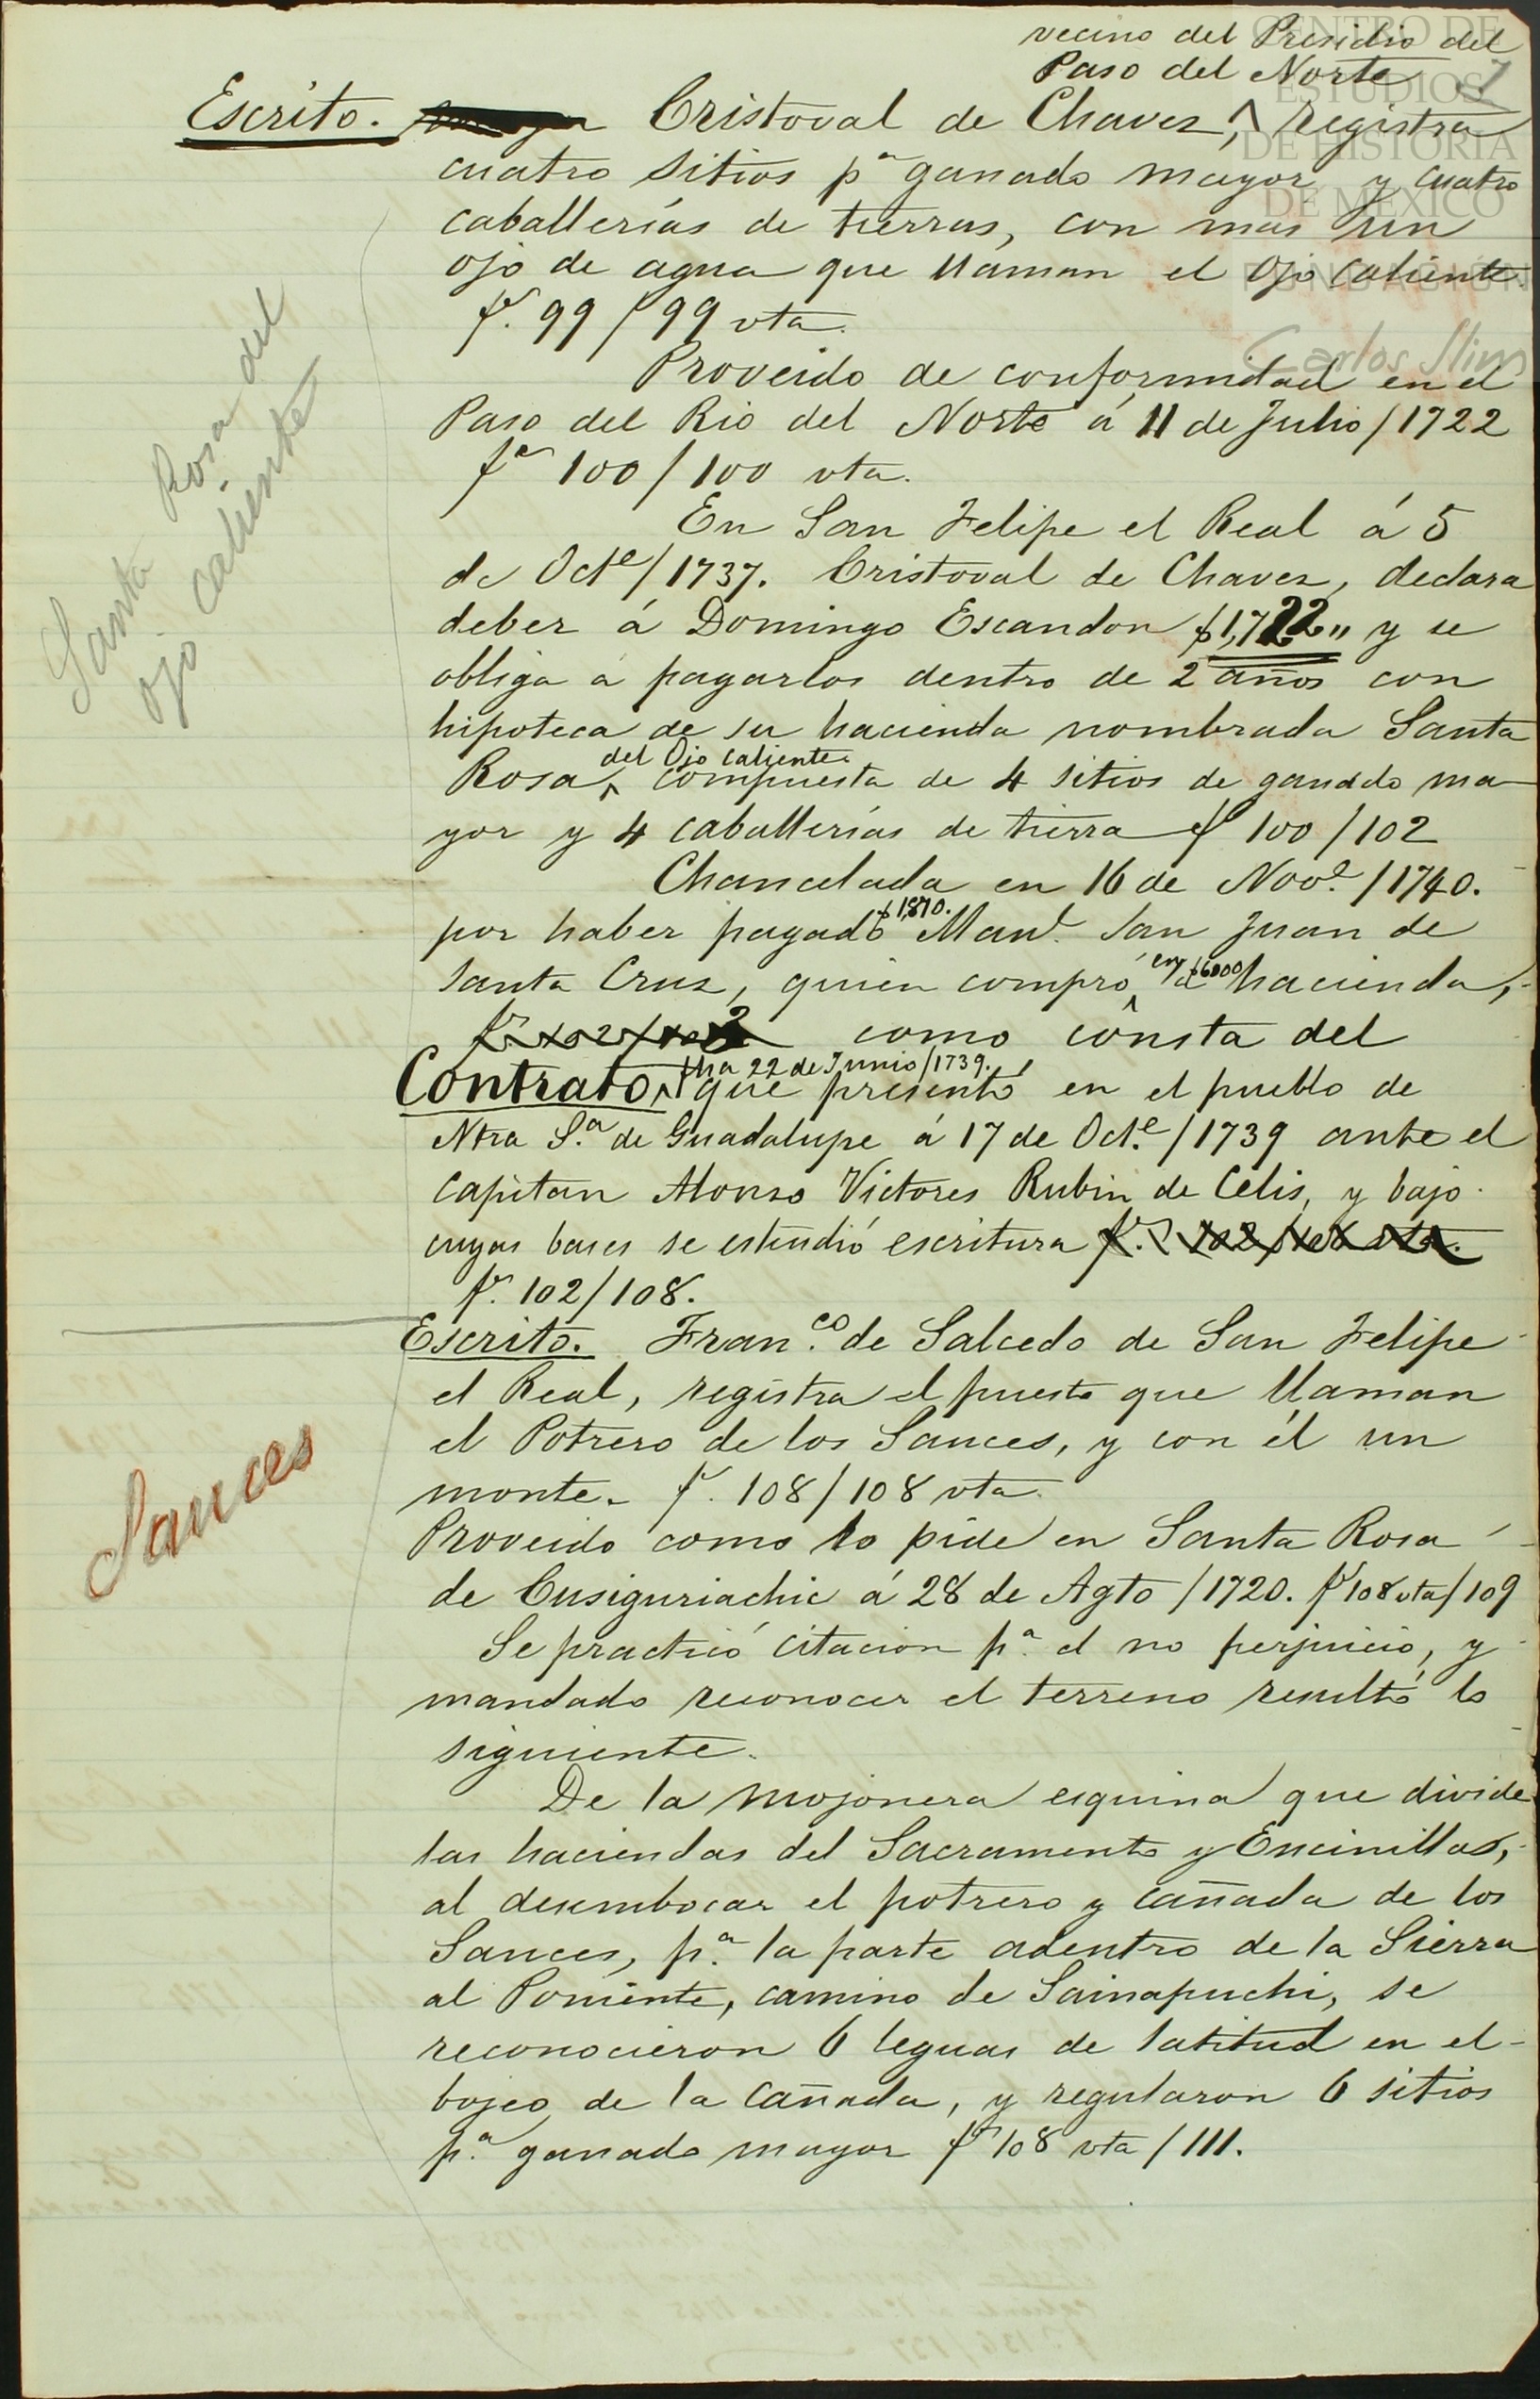 vecino del Presidio del
Paso del Norte
7
Escrito. Cristoval de Chavez, ^ registra
cuatro sitios pª ganado mayor y cuatro
caballerías de tierras, con mas un
ojo de agua que llaman el Ojo caliente.
f. 99 / 99 vta.
Proveido de conformidad en el
Paso del Rio del Norte á 11 de Julio / 1722
fª 100 / 100 vta.
En San Felipe el Real á 5
de Octe / 1737. Cristoval de Chavez, declara
deber á Domingo Escandon $1,722,, y se
obliga á pagarlos dentro de 2 años con
hipoteca de su hacienda nombrada Santa
del Ojo caliente.
Rosa ^ compuesta de 4 sitios de ganado ma
yor y 4 caballerías de tierra f 100 / 102
Chancelada en 16 de Nove / 1740.
$1,870.
por haber pagado Manl. San Juan de
Santa Cruz, quien compró ^ en $6000 la hacienda,
como consta del
fha 22 de Junio / 1739.
Contrato, ^ que presentó en el pueblo de
Ntra S.ª de Guadalupe á 17 de Oct.e / 1739 ante el
Capitan Alonso Victores Rubin de Celis, y bajo
cuyas bases se estendió escritura f. 102 / 108 vta.
f. 102 / 108.
Escrito. Fran.co de Salcedo de San Felipe
el Real, registra el puesto que llaman
el Potrero de los Sauces, y con él un
monte. f. 108 / 108 vta.
Proveido como lo pide en Santa Rosa
de Cusiguriachic á 28 de Agto / 1720. f 108 vta / 109
Se practicó citacion p.ª el no perjuicio, y
mandado reconocer el terreno resultó lo
siguiente.
De la mojonera esquina que divide
las haciendas del Sacramento y Encinillas,
al desembocar el potrero y cañada de los
Sauces, p.ª la parte adentro de la Sierra
al Poniente, camino de Sainapuchi, se
reconocieron 6 leguas de latitud en el
bojeo de la cañada, y regularon 6 sitios
p.ª ganado mayor f 108 vta / 111.
Santa Rosa del
ojo caliente
Sauces
CENTRO DE
ESTUDIOS
DE HISTORIA
DE MEXICO
FUNDACIÓN
Carlos Slim